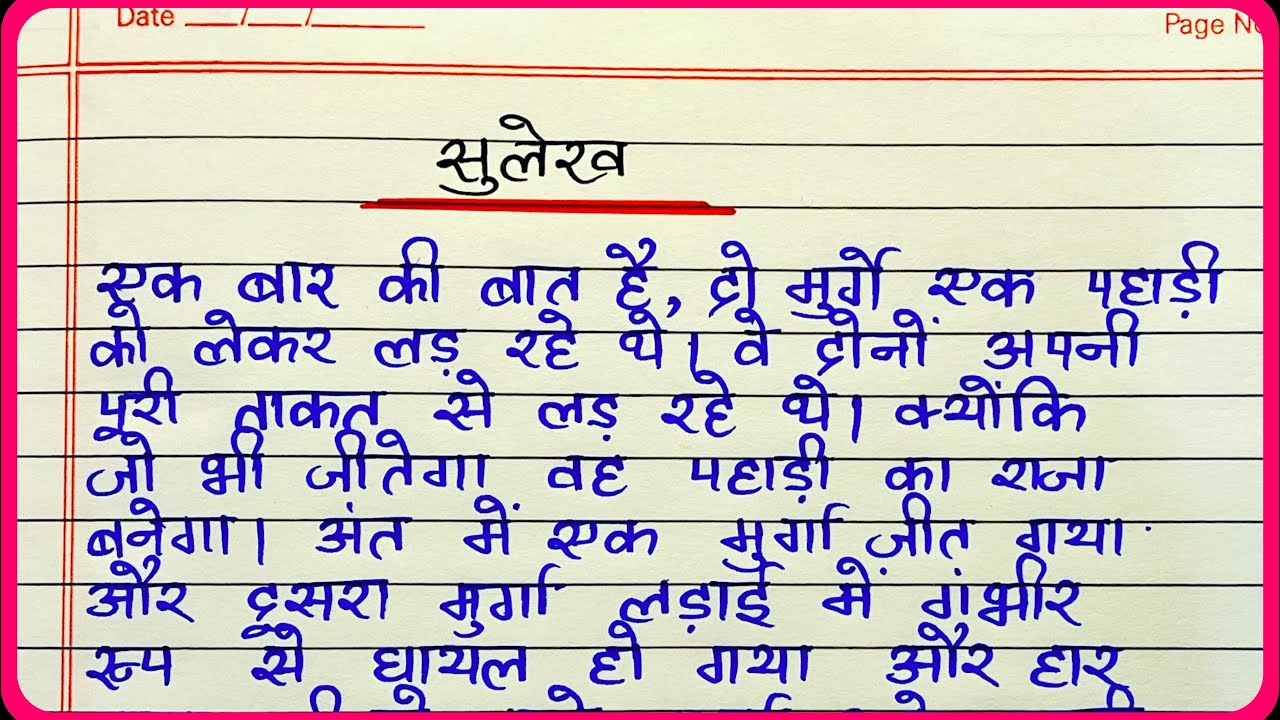 Date __/__/____
Page No
सुलेख
एक बार की बात है, दो मुर्गे एक पहाड़ी
को लेकर लड़ रहे थे। वे दोनों अपनी
पूरी ताकत से लड़ रहे थे। क्योंकि
जो भी जीतेगा वह पहाड़ी का राजा
बनेगा। अंत में एक मुर्गा जीत गया
और दूसरा मुर्गा लड़ाई में गंभीर
रूप से घायल हो गया और हार